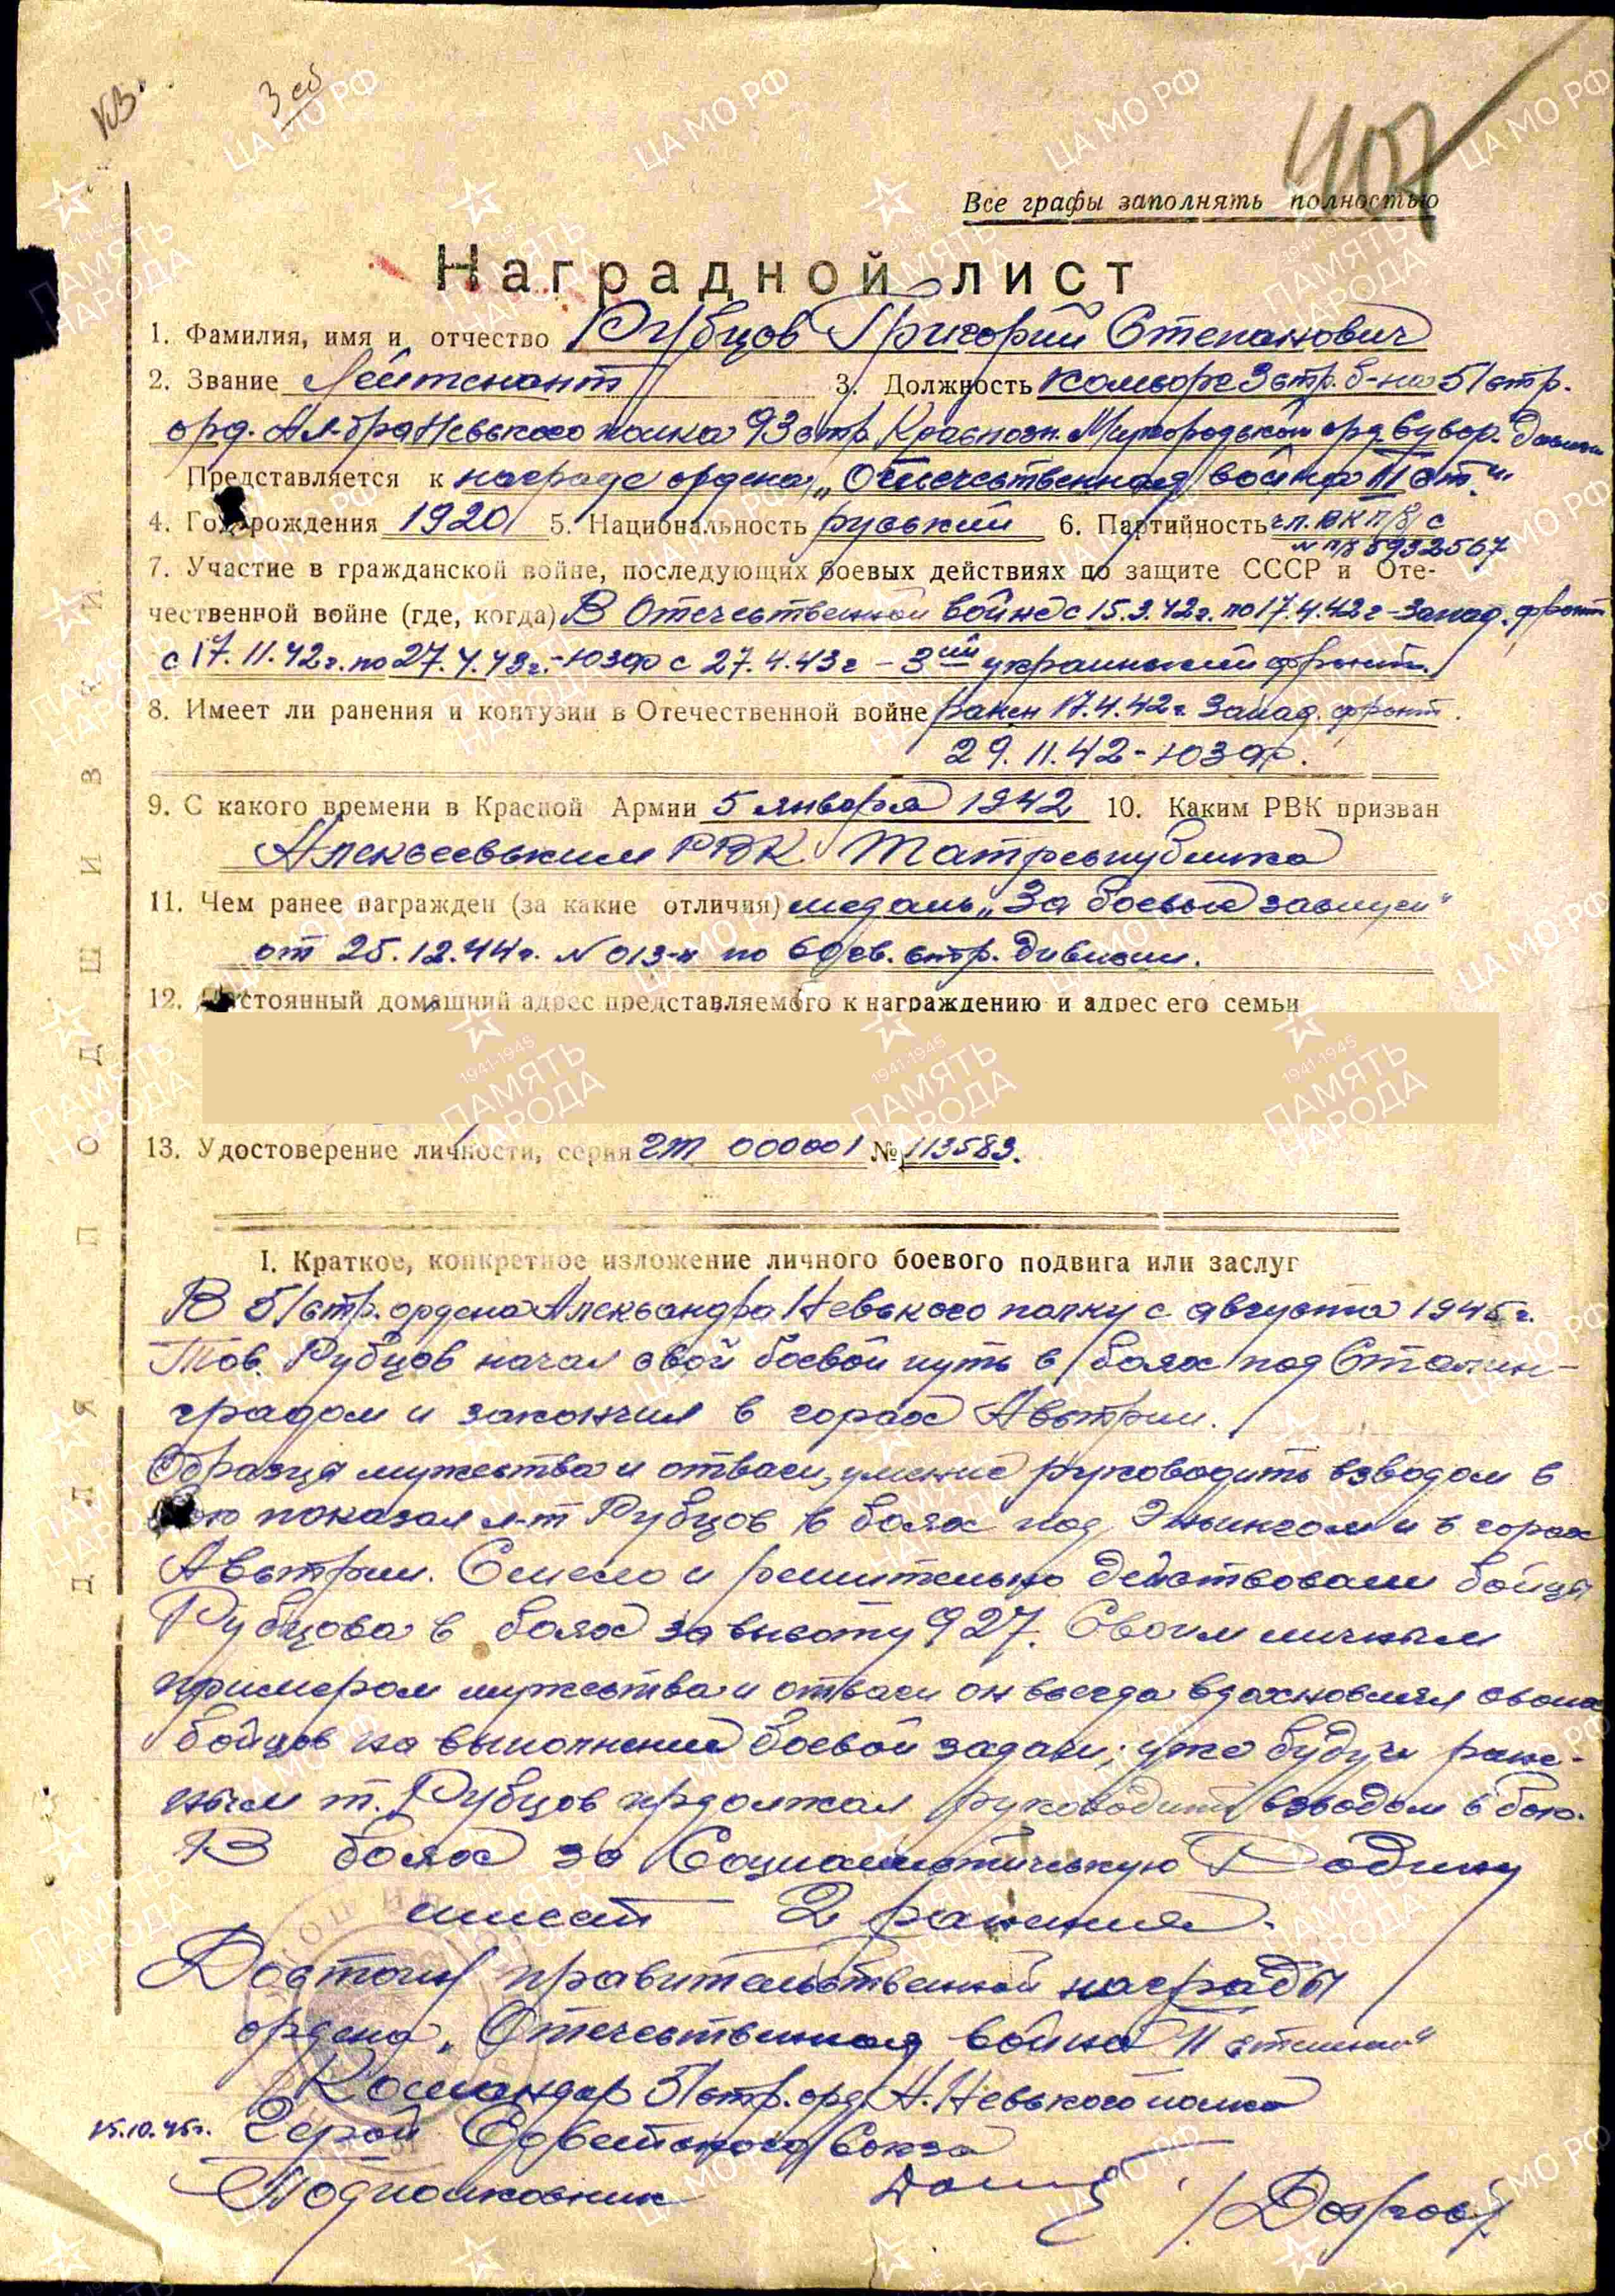 Зсб
407
Все графы заполнять полностью
Наградной лист
1. Фамилия, имя и отчество Рубцов Григорий Степанович
2. Звание Лейтенант 3. Должность 3 стр. б-на 51 стр.
орд. Ал-дра Невского полка 93 стр. Краснозн. Миргородской орд. Сувор. дивизии
Представляется к награде ордена „Отечественная война II ст."
4. Год рождения 1920 5. Национальность русский 6. Партийность чл. ВКП/б/ с
№ п/б 5932567
7. Участие в гражданской войне, последующих боевых действиях по защите СССР и Оте-
чественной войне (где, когда) В Отечественной войне с 15.3.42г. по 17.4.42г - Запад. фронт
с 17.11.42г. по 27.4.43г. - ЮЗФ с 27.4.43г - 3ий украинский фронт.
8. Имеет ли ранения и контузии в Отечественной войне ранен 17.4.42г. Запад. фронт.
29.11.42 - ЮЗФ.
9. С какого времени в Красной Армии 5 января 1942 10. Каким РВК призван
Алексеевским РВК Татреспублика
11. Чем ранее награжден (за какие отличия) медаль „За боевые заслуги"
от 25.12.44г. № 013-н по 60 гв. стр. дивизии.
12. Постоянный домашний адрес представляемого к награждению и адрес его семьи
13. Удостоверение личности, серия 2т 000001 № 113583.
I. Краткое, конкретное изложение личного боевого подвига или заслуг
В 51 стр. ордена Александра Невского полку с августа 1945г.
Тов. Рубцов начал свой боевой путь в боях под Сталин-
градом и закончил в горах Австрии.
Образцы мужества и отваги, умение руководить взводом в
бою показал л-т Рубцов в боях под и в горах
Австрии. Смело и решительно действовали бойцы
Рубцова в боях за высоту 927. Своим личным
примером мужества и отваги он всегда вдохновлял своих
бойцов на выполнение боевой задачи; уже будучи ране-
ным т. Рубцов прдолжал руководить взводом в бою.
В боях за Социалистическую Родину
имеет 2 ранения.
Достоин правительственной награды
ордена „Отечественная война II степени"
Командир 51 стр. орд. А. Невского полка
15.10.45г. Герой Советского Союза
Подполковник
ДЛЯ ПОДШИВКИ
ЦА МО РФ
1941-1945
ПАМЯТЬ
НАРОДА